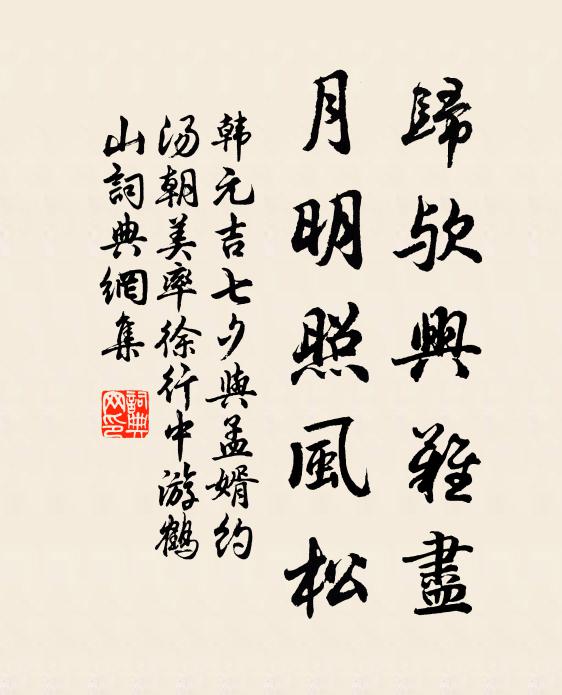 歸欤興難盡
月明照風松
韩元吉七夕與孟婿约
汤朝美率徐行中游鶴
山詞典網集
詞典网印